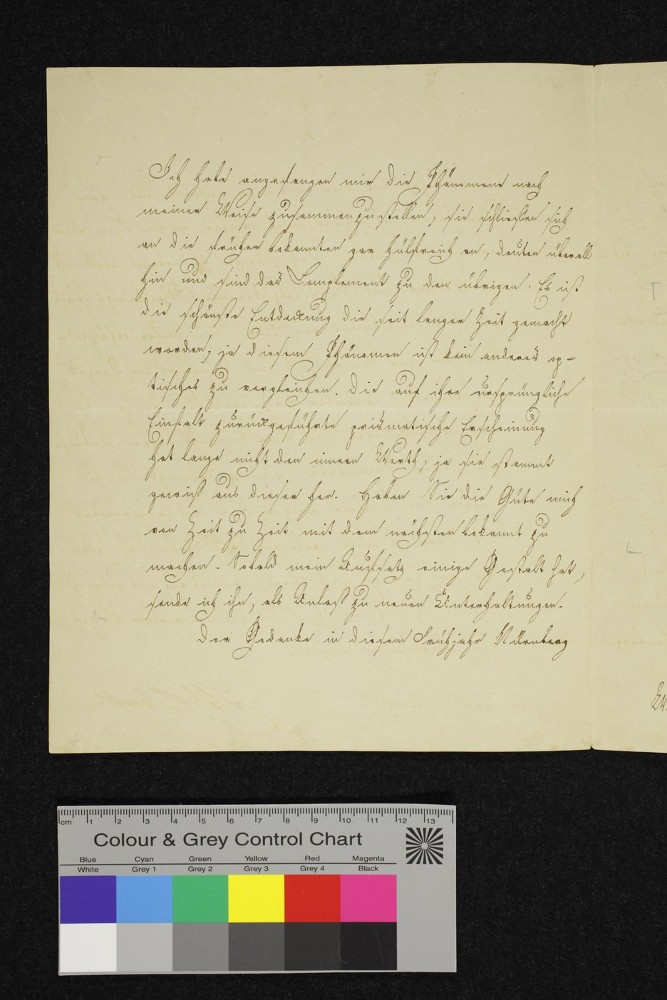 Ich habe angefangen mir die Phänomene nach
meiner Weise zusammenzustellen, sie schließen sich
an die früher bekannten gar hülfreich an, deuten überall
hin und sind das Complement zu den übrigen. Es ist
die schönste Entdeckung die seit langer Zeit gemacht
worden, ja diesem Phänomen ist kein anderes op-
tisches zu vergleichen. Die auf ihre ursprüngliche
Einfalt zurückgeführte prismatische Erscheinung
hat lange nicht den innern Werth, ja sie stammt
gewiß aus dieser her. Haben Sie die Güte mich
von Zeit zu Zeit mit dem nächsten bekannt zu
machen. Sobald mein Aufsatz einige Gestalt hat,
sende ich ihn, als Anlaß zu neuen Unterhaltungen.
Der Gedanke in diesem Frühjahr Nürnberg
cm 1 2 3 4 5 6 7 8 9 10 11 12 13
Colour & Grey Control Chart
Blue Cyan Green Yellow Red Magenta
White Grey 1 Grey 2 Grey 3 Grey 4 Black